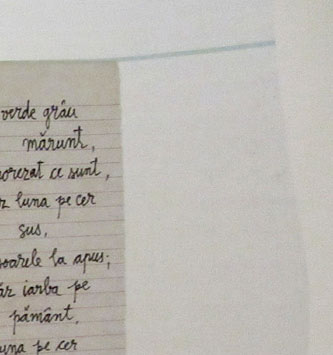 verde grâu
mărunt,
ce sunt,
luna pe cer
sus,
soarele la apus;
iarba pe
pământ.
luna pe cer